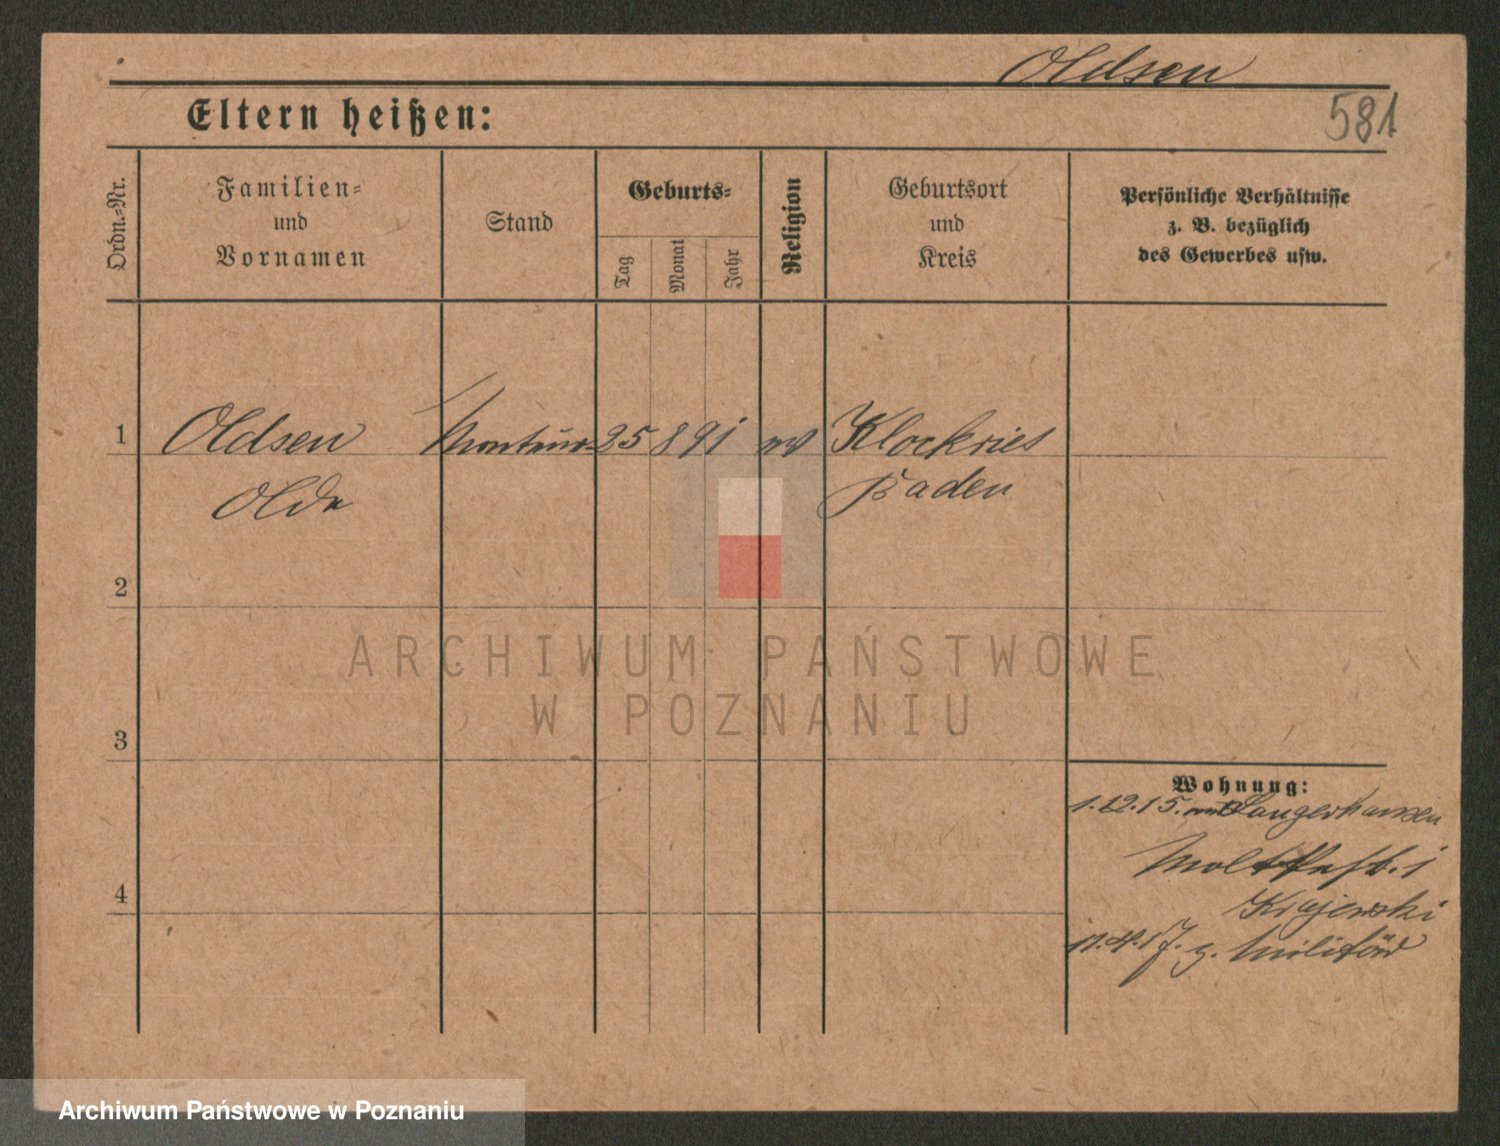 Oldsen
Eltern heißen:
581
Ordn.-Nr.
Familien-
und
Vornamen
Stand
Geburts-
Tag
Monat
Jahr
Religion
Geburtsort
und
Kreis
Persönliche Verhältnisse
z. B. bezüglich
des Gewerbes usw.
1
Oldsen
Monteur
25 8 91
ev
Klockries
Baden
2
3
4
ARCHIWUM PAŃSTWOWE
W POZNANIU
Wohnung:
1.12.15. Sangerhausen
Moltkestr. 1
Krajewski
11.4.17. z. Militär
Archiwum Państwowe w Poznaniu